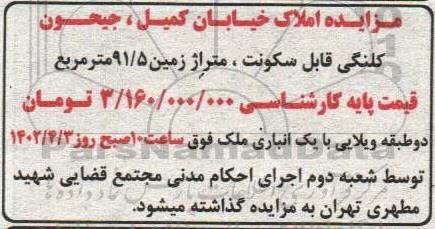 مزایده املاک خیابان کمیل ، جیحون
کلنگی قابل سکونت ، متراژ زمین ۹۱/۵مترمربع
قیمت پایه کارشناسی ۳/۱۶۰/۰۰۰/۰۰۰ تومان
دوطبقه ویلایی با یک انباری ملک فوق ساعت۱۰صبح روز ۱۴۰۲/۴/۳
توسط شعبه دوم اجرای احکام مدنی مجتمع قضایی شهید
مطهری تهران به مزایده گذاشته میشود.
ParsNamadData